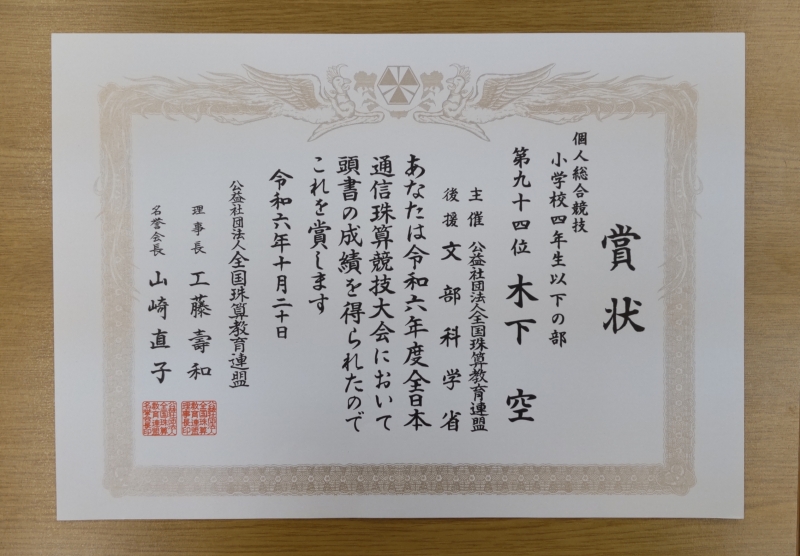 賞状
個人総合競技
小学校四年生以下の部
第九十四位 木下 空
主催 公益社団法人全国珠算教育連盟
後援 文部科学省
あなたは令和六年度全日本
通信珠算競技大会において
頭書の成績を得られたので
これを賞します
令和六年十月二十日
公益社団法人全国珠算教育連盟
理事長 工藤壽和
名誉会長 山崎直子